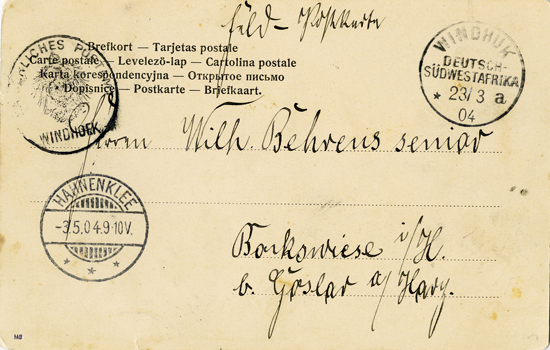 Feld-Postkarte
Brefkort — Tarjetas postale
Carte postale — Levelező-lap — Cartolina postale
Karta korespondencyjna — Открытое письмо
Dopisnice — Postkarte — Briefkaart.
WINDHOEK
WINDHUK
DEUTSCH-
SÜDWESTAFRIKA
* 23/3 a
04
Herrn Wilh. Behrens senior
HAHNENKLEE
-3.5.04.9-10V.
* * *
Bockswiese i/H.
b. Goslar a/Harz.